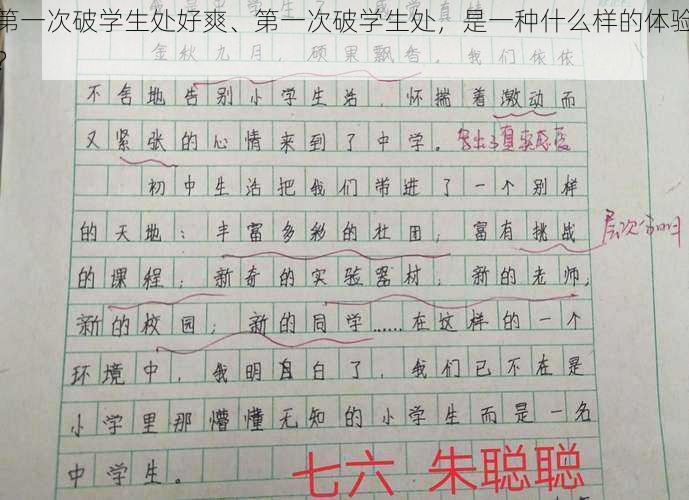 第一次破学生处好爽、第一次破学生处，是一种什么样的体验
?
金秋九月，硕果飘香，我们依依
不舍地告别小学生活，怀揣着激动而
又紧张的心情来到了中学。写出了真实感受
初中生活把我们带进了一个别样
的天地：丰富多彩的社团；富有挑战
的课程；新奇的实验器材；新的老师；
层次分明
新的校园；新的同学……在这样的一个
环境中，我明白了，我们已不在是
小学里那懵懂无知的小学生而是一名
中学生。
七六 朱聪聪